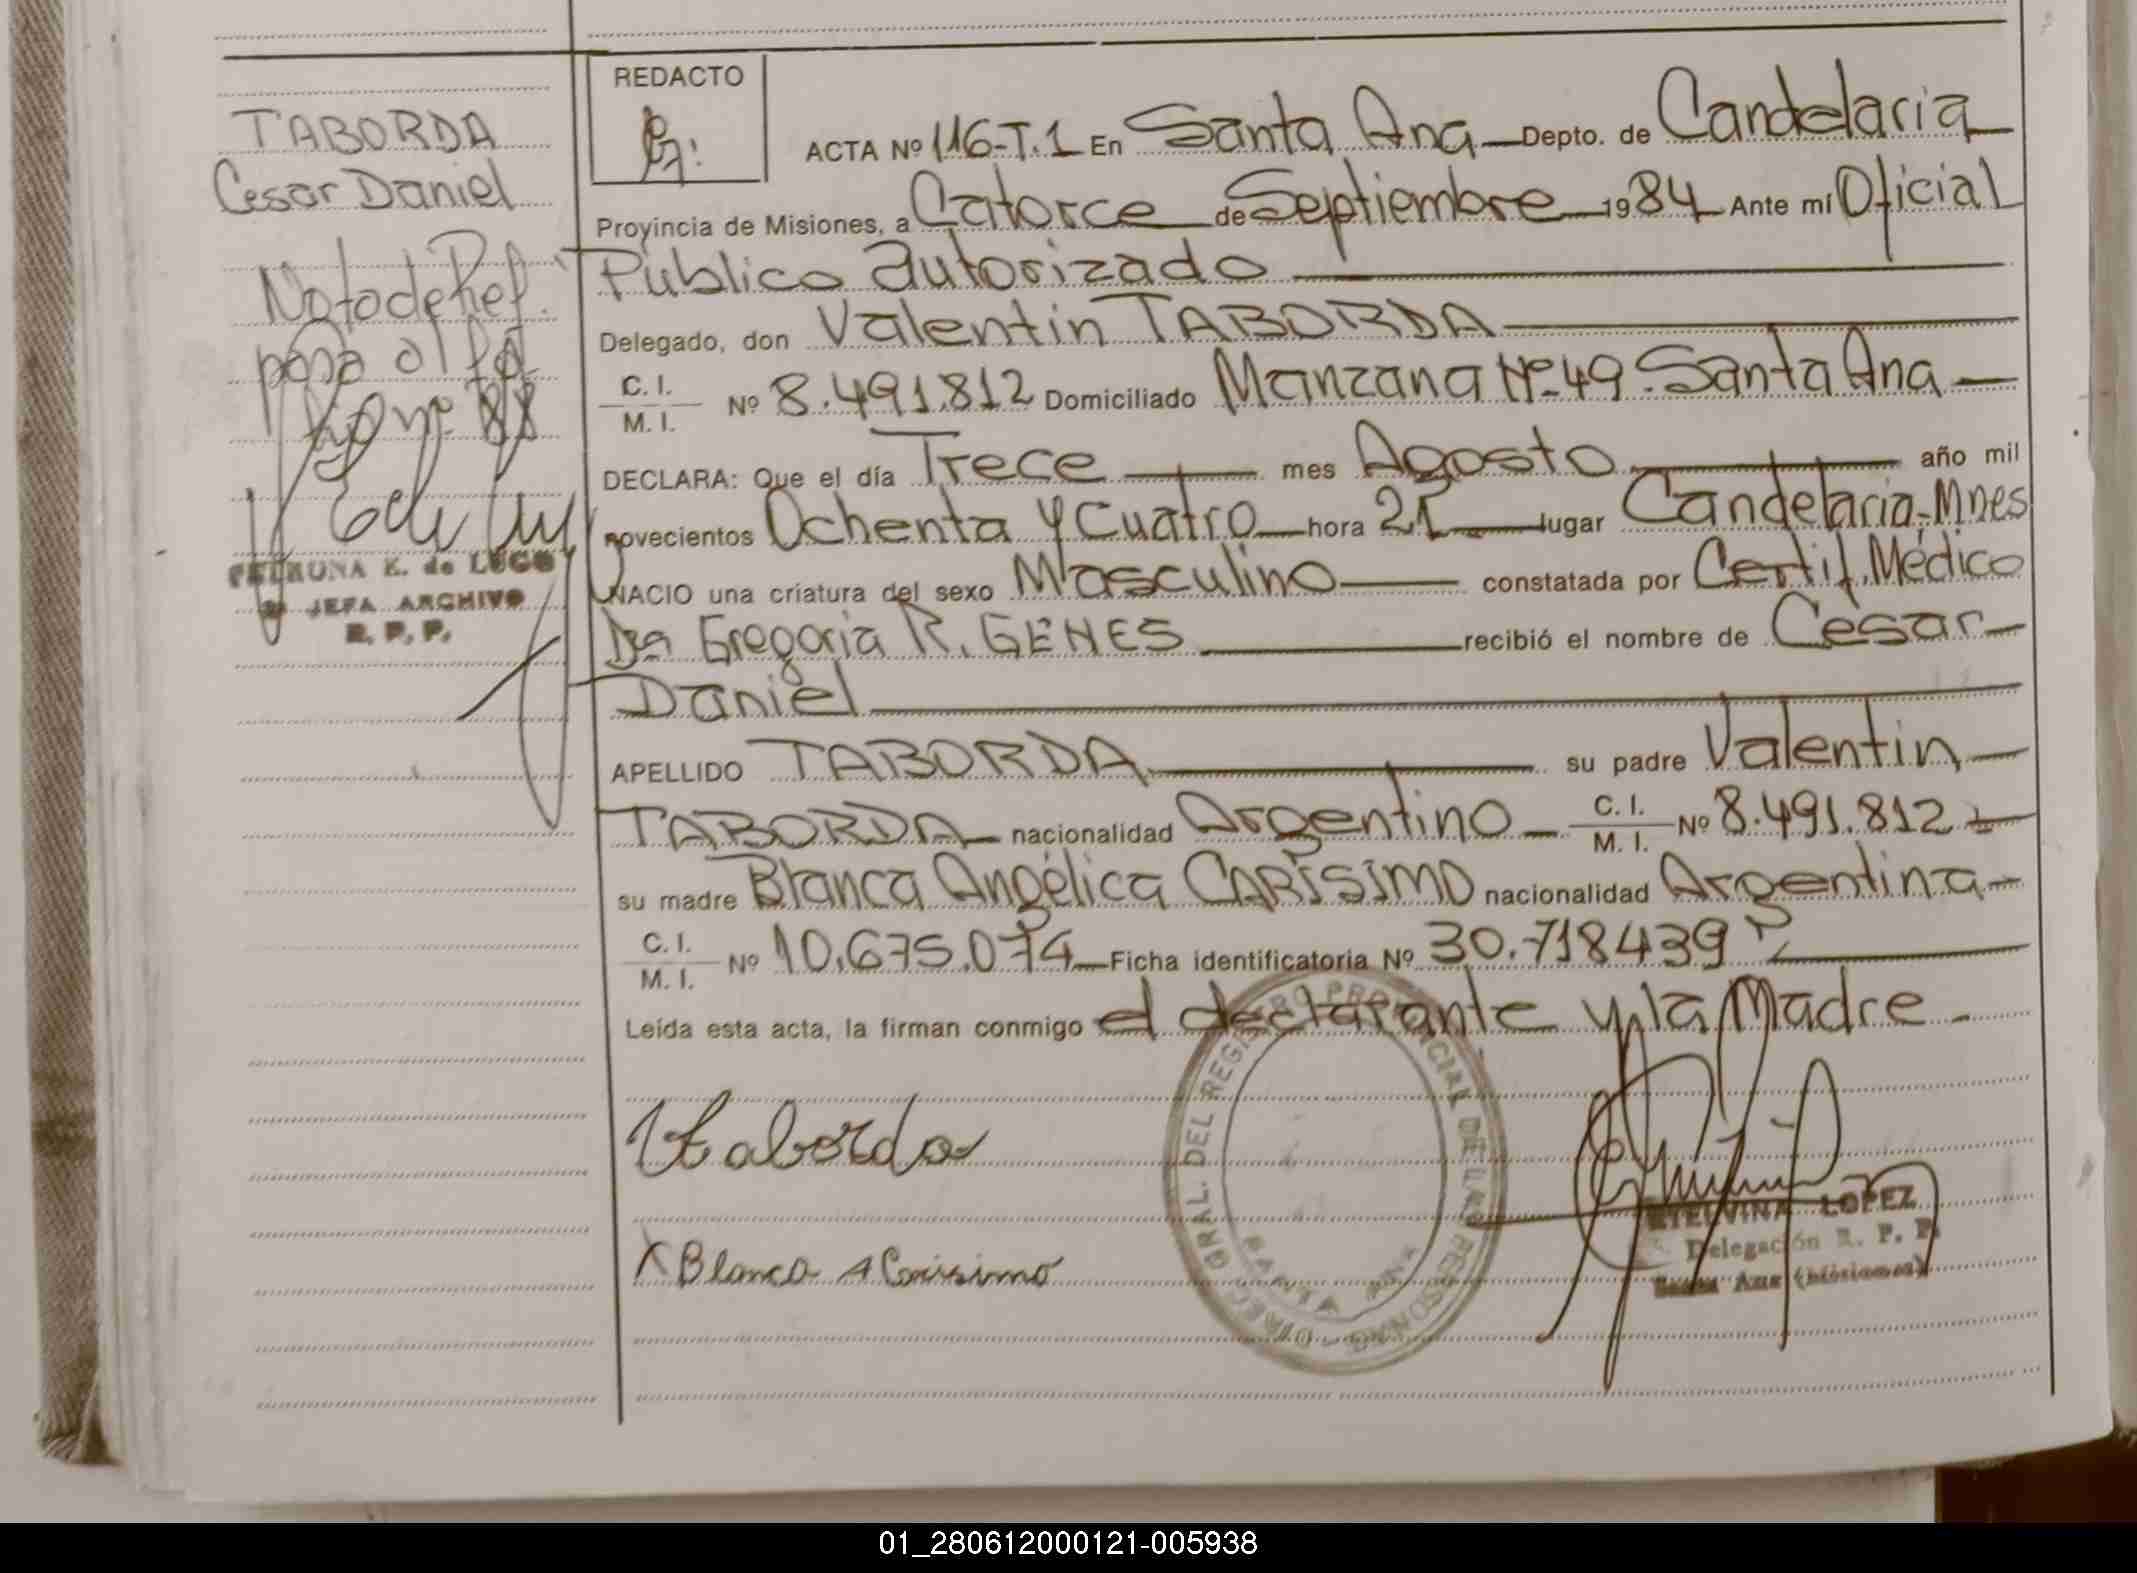 TABORDA
Cesar Daniel
Nota de Ref.
PETRONA E. de LUGO
JEFA ARCHIVO
R. P. P.
REDACTO
ACTA Nº 116-T.1 En Santa Ana Depto. de Candelaria
Provincia de Misiones, a Catorce de Septiembre 1984 Ante mí Oficial
Público autorizado
Delegado, don Valentin TABORDA
C. I.
M. I. Nº 8.491.812 Domiciliado Manzana Nº 49 - Santa Ana
DECLARA: Que el día Trece mes Agosto año mil
novecientos Ochenta y Cuatro hora 21 lugar Candelaria-Mnes
NACIO una criatura del sexo Masculino constatada por Certif. Médico
Dra Gregoria R. GENES recibió el nombre de César
Daniel
APELLIDO TABORDA su padre Valentin
TABORDA nacionalidad Argentino C. I. M. I. Nº 8.491.812
su madre Blanca Angélica CARISIMO nacionalidad Argentina
C. I.
M. I. Nº 10.675.074 Ficha identificatoria Nº 30.718439
Leída esta acta, la firman conmigo el declarante y la Madre.
VTaborda
X Blanca A Carisimo
DIREC. GRAL. DEL REGISTRO PROVINCIAL DE LAS PERSONAS
SANTA ANA
ETELVINA LOPEZ
Delegación R. P. P.
Santa Ana (Misiones)
01_280612000121-005938